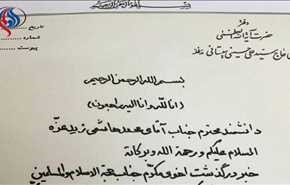 بسم الله الرحمن الرحیم
تاریخ
شماره
پیوست
دفتر
حضرت آیة الله العظمی
سید علی حسینی سیستانی
بسم الله الرحمن الرحیم
(انا لله وانا الیه راجعون)
دانشمند محترم جناب آقای محمد هاشمی زید عزه
السلام علیکم ورحمة الله وبرکاته
خبر درگذشت اخوی مکرّم جناب حجة الاسلام والمسلمین